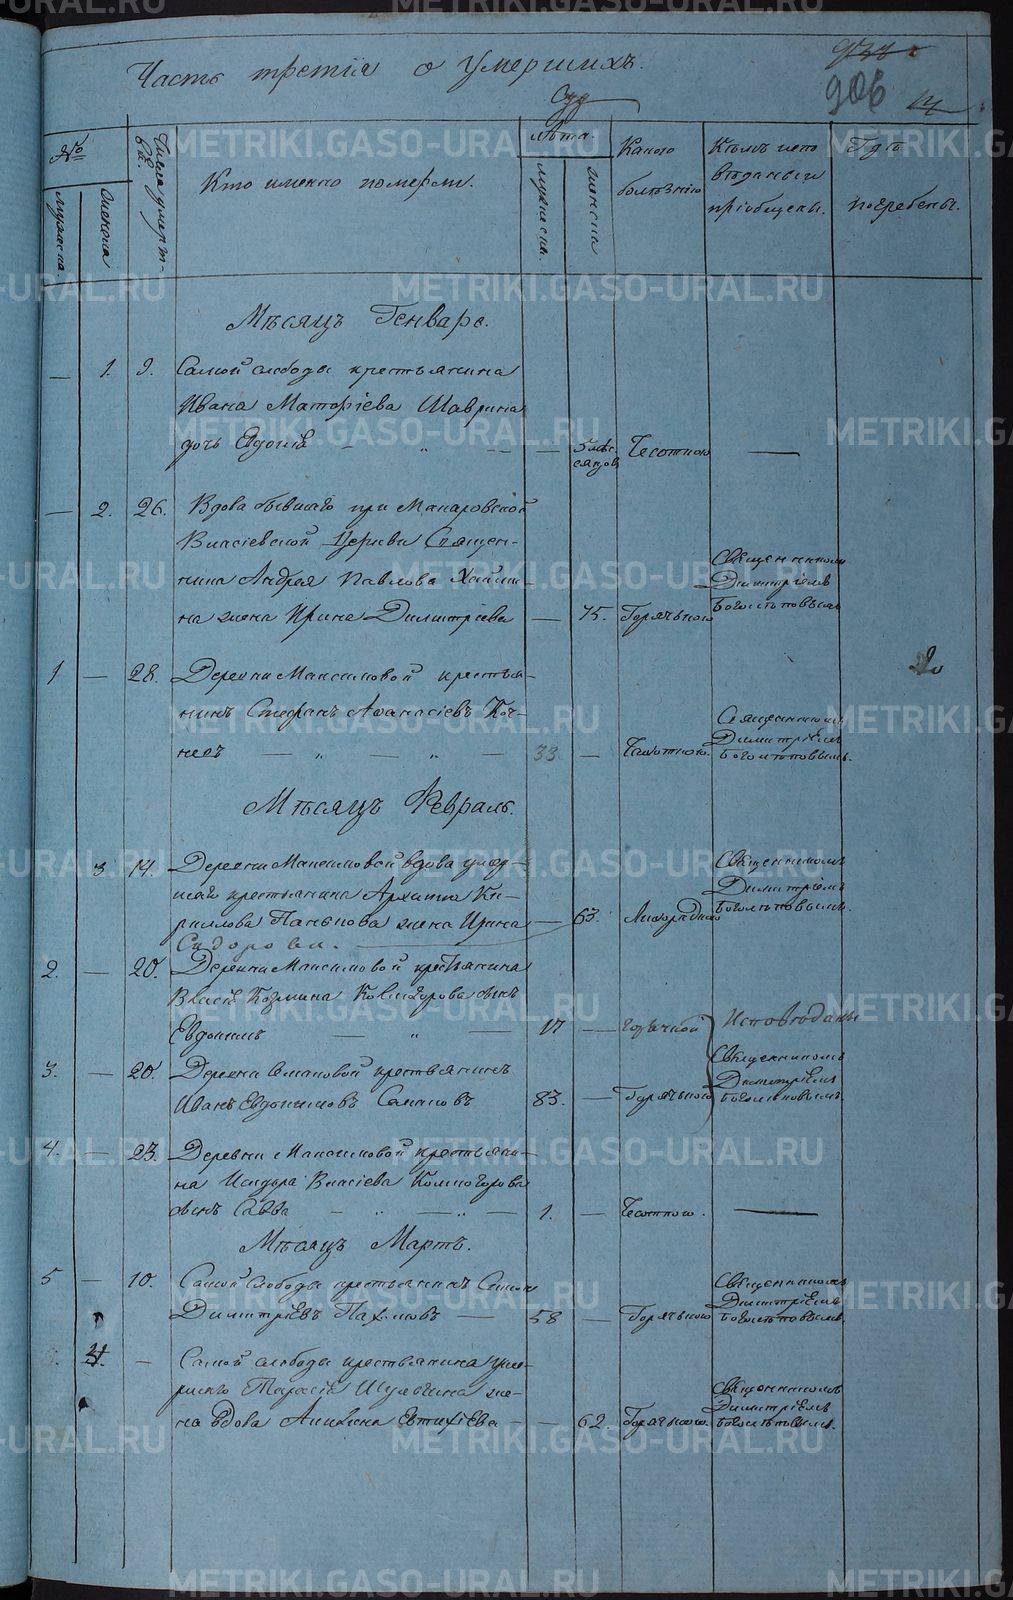 Часть третія о умершихъ.
906
№
мужеска.
женска
Числа умерт-
вій.
Кто именно померли.
Лѣта.
мужеска.
женска
Какою
болѣзнію
Кѣмъ исповѣданы и
пріобщены.
Гдѣ
погребены.
Мѣсяцъ Генварь.
— 1. 9. Самой слободы крестьянина
Ивана Матфіева Шаврина
дочь Евдокія — „ — — 5 мѣ-
сяцовъ Чесоткою —
— 2. 26. Вдова бывшаго при Макаровской
Власіевской Церкви Священ-
ника Андрея Павлова
на жена Ирина Димитріева — 75. Горячкою
Священникомъ
Димитріемъ
Боголѣповымъ
1 — 28. Деревни Максимовой крестья-
нинъ Стефанъ Аѳанасіевъ Коч-
невъ — „ — „ — 33. — Чахоткою.
Священникомъ
Димитріемъ
Боголѣповымъ.
Мѣсяцъ Февраль.
3 14. Деревни Максимовой вдова умер-
шаго крестьянина Архипа Ки-
рилова жена Ирина — 63. Лихорадкою
Сидорова.
Священникомъ
Димитріемъ
Боголѣповымъ.
2. — 20. Деревни Максимовой крестьянина
Власія Козмина Комогорова сынъ
Евдокимъ — „ — 17 — горячкой
Исповѣданы
3. — 20. Деревни Семаковой крестьянинъ
Иванъ Евдокимовъ Семаковъ 83. — Горячкою
Священникомъ
Димитріемъ
Боголѣповымъ.
4. — 23. Деревни Максимовой крестьяни-
на Исидора Власіева Комогорова
сынъ Савва — „ — „ — 1. — Чесоткою. —
Мѣсяцъ Мартъ.
5 — 10. Самой слободы крестьянинъ Семенъ
Димитріевъ Пахомовъ — 58 — Горячкою
Священникомъ
Димитріемъ
Боголѣповымъ.
4. — Самой слободы крестьянина умер-
шаго Тарасія Шульгина же-
на вдова Акилина Евтихіева — — 62. Горячкою.
Священникомъ
Димитріемъ
Боголѣповымъ.
METRIKI.GASO-URAL.RU